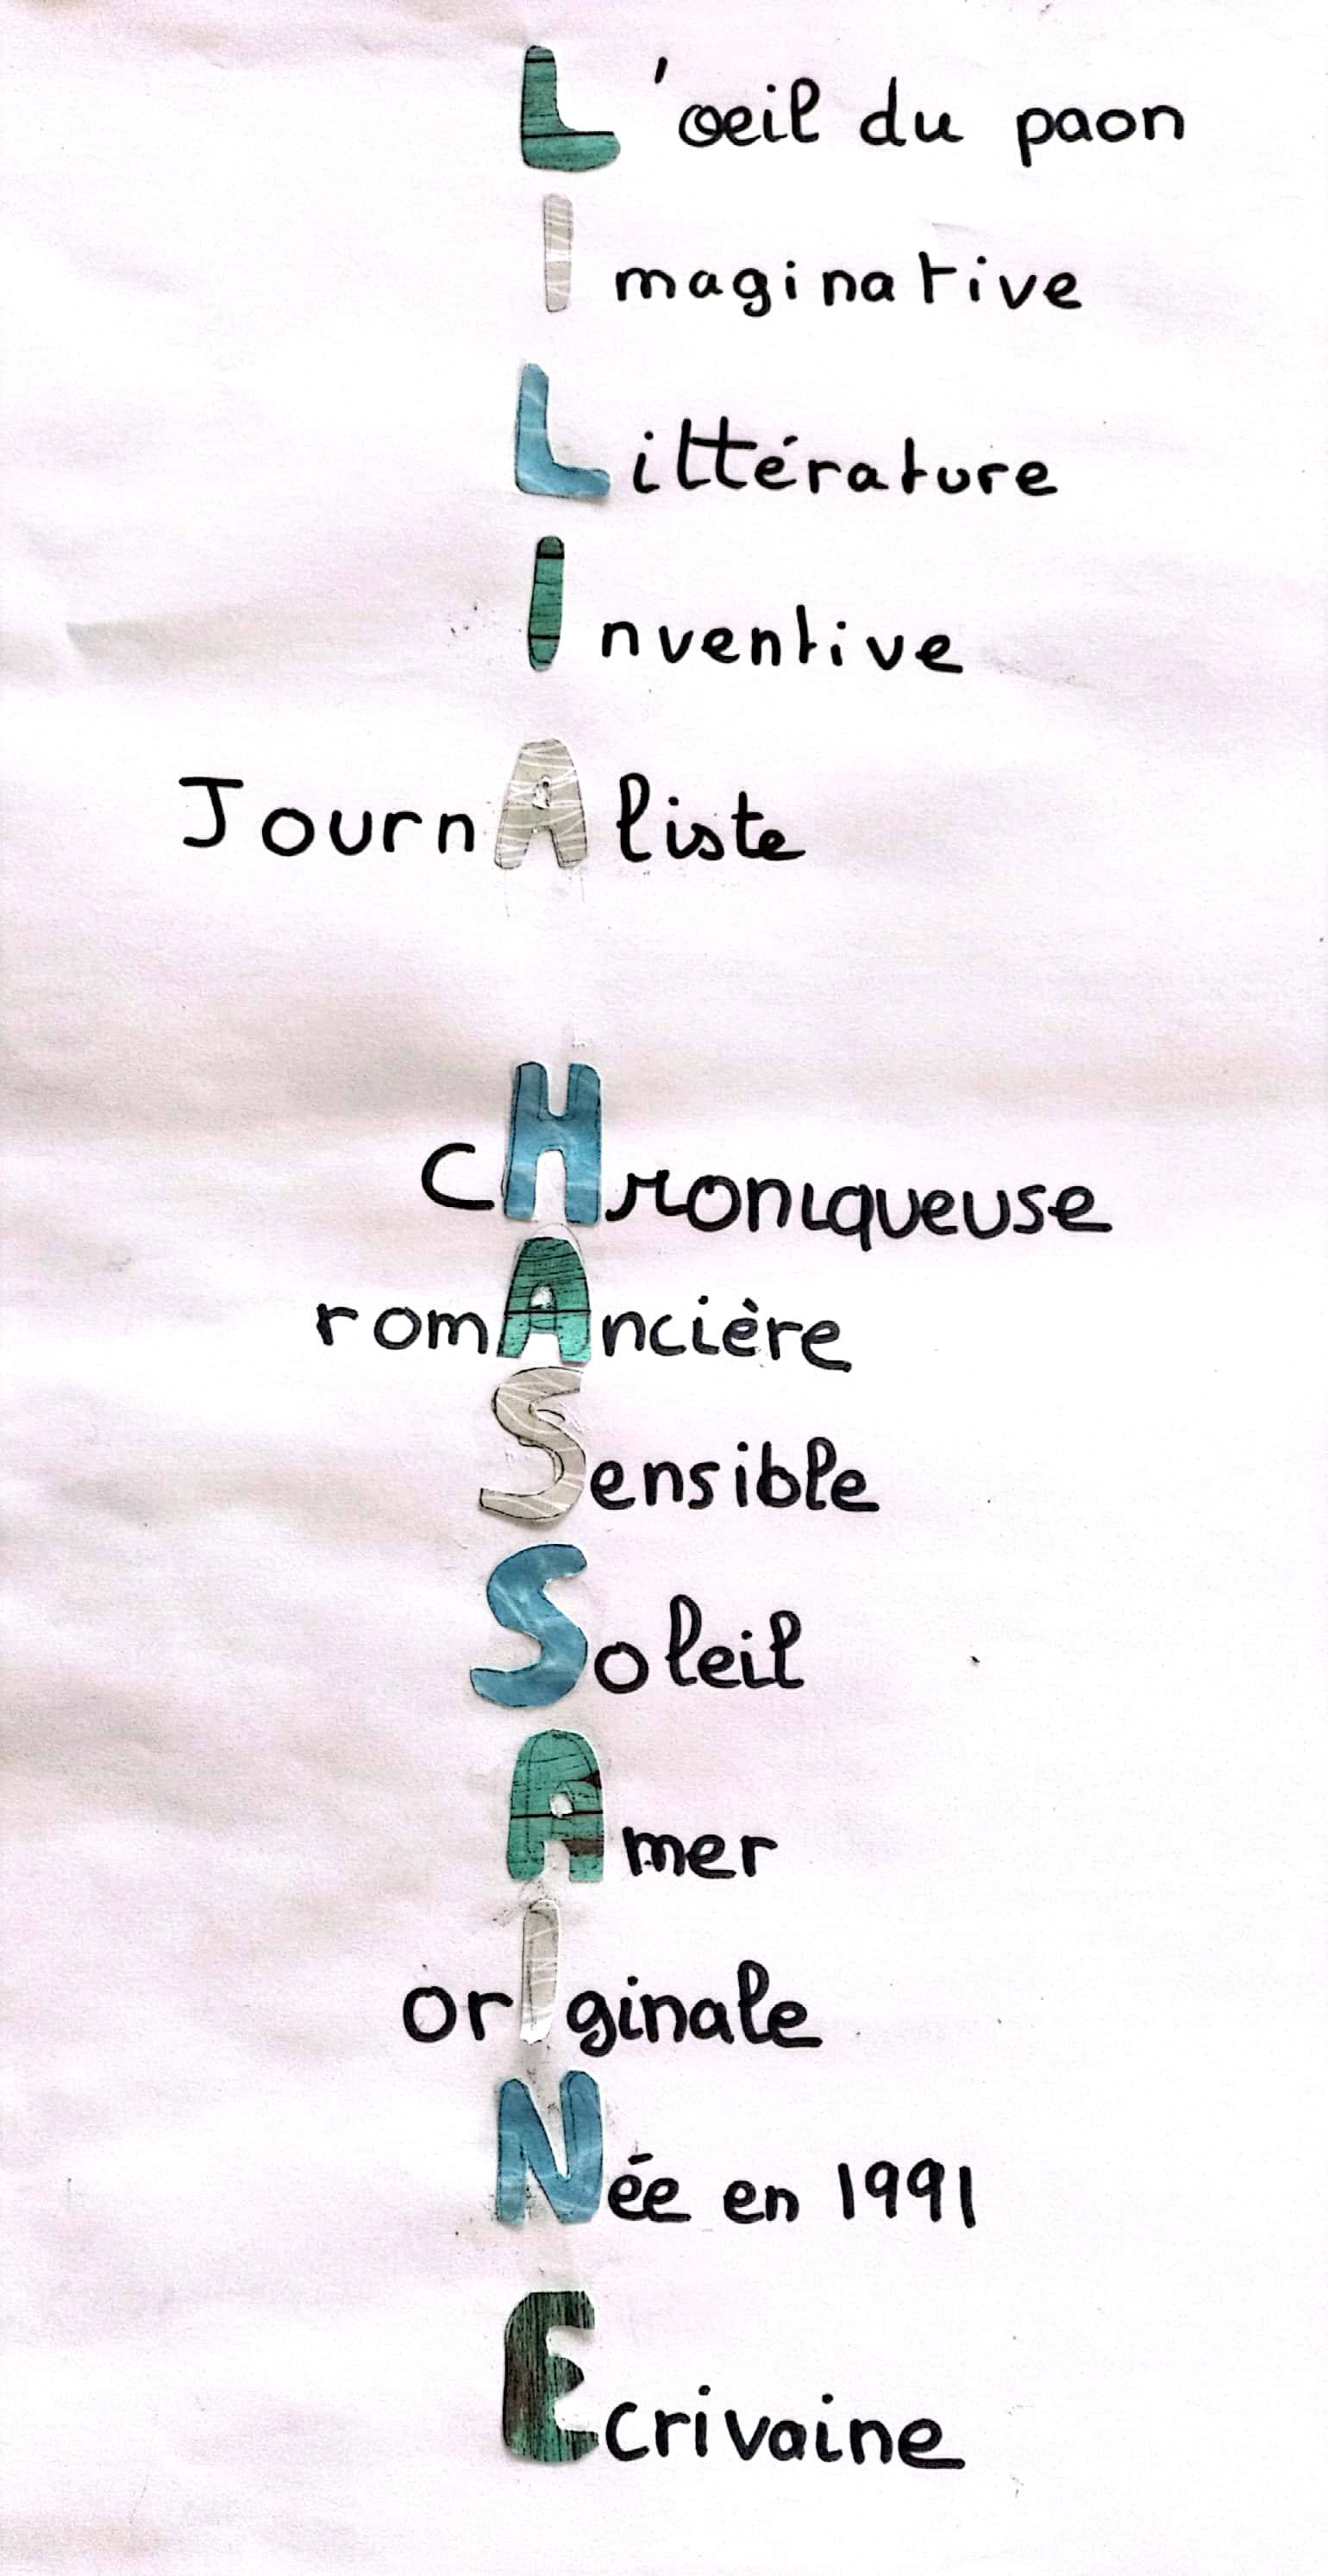 L'œil du paon
Imaginative
Littérature
Inventive
JournAliste
CHroniqueuse
romAncière
Sensible
Soleil
Amer
orIginale
Née en 1991
Ecrivaine